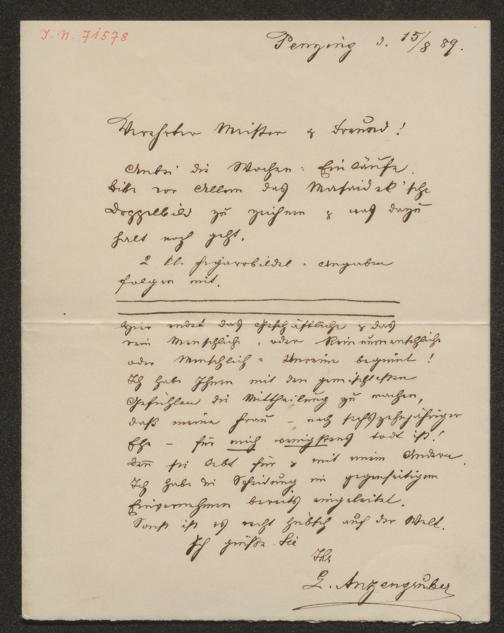 I. N. 71578
Penzing d. 15/8 89.
Verehrter Meister & Freund!
Anbei die Wochen-Einläufe.
Bitte vor Allem das
Doppelbild zu zeichnen & was dazu
halt noch geht.
2 kl. Angaben
folgen mit.
Hier endet das Geschäftliche & das
rein Menschliche, oder Reinunmenschliche
oder Menschlich-Unreine beginnt!
Ich habe Ihnen mit den gemischtesten
Gefühlen die Mittheilung zu machen,
daß meine Frau – nach sechszehnjähriger
Ehe – für mich wenigstens todt ist!
Denn sie lebt für & mit einem Andern.
Ich habe die Scheidung im gegenseitigen
Einvernehmen bereits eingeleitet.
Sonst ist es recht hübsch auf der Welt.
Ich grüße Sie
Ihr
L. Anzengruber